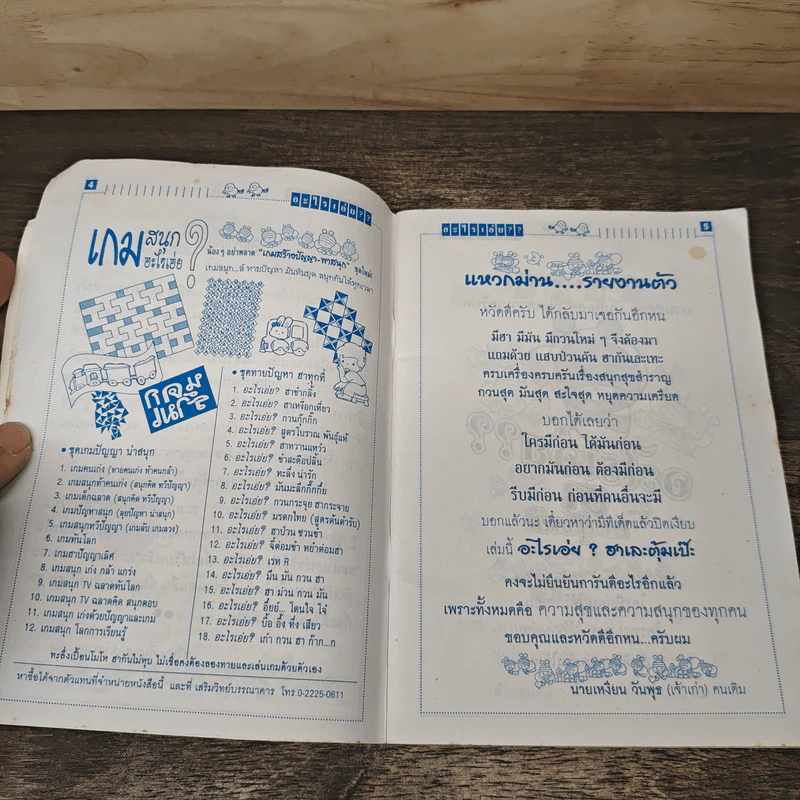 4
อะไรเอ่ย??
เกม สนุก
อะไรเอ่ย ?
น้องๆ อย่าพลาด "เกมสร้างปัญญา-พาสนุก" ชุดใหม่!
เกมสนุก...ล้ ทายปัญหา มันทันยุค สนุกกันได้ทุกเวลา
• ชุดเกมปัญญา น่าสนุก
1. เกมคนเก่ง (ทายคนเก่ง ท้าคนกล้า)
2. เกมสนุกท้าคนเก่ง (สนุกคิด ทวีปัญญา)
3. เกมเด็กฉลาด (สนุกคิด ทวีปัญญา)
4. เกมปัญหาสนุก (ลุยปัญหา น่าสนุก)
5. เกมสนุกทวีปัญญา (เกมลับ เกมลวง)
6. เกมทันโลก
7. เกมฮาปัญญาเลิศ
8. เกมสนุก เก่ง กล้า แกร่ง
9. เกมสนุก TV ฉลาดทันโลก
10. เกมสนุก TV ฉลาดคิด สนุกตอบ
11. เกมสนุก เก่งด้วยปัญญาและเกม
12. เกมสนุก โลกการเรียนรู้
• ชุดทายปัญหา ฮาทุกที่
1. อะไรเอ่ย? ฮาขำกลิ้ง
2. อะไรเอ่ย? ฮาเหงือกเหี่ยว
3. อะไรเอ่ย? กวนกุ๊กกิ๊ก
4. อะไรเอ่ย? สูตรโบราณ พันธุ์แท้
5. อะไรเอ่ย? ฮาหวานแหวว
6. อะไรเอ่ย? ขำสะดือปลิ้น
7. อะไรเอ่ย? ทะลึ่ง น่ารัก
8. อะไรเอ่ย? มันมะลึกกึ๊กกึ๋ย
9. อะไรเอ่ย? กวนกระจุย ฮากระจาย
10. อะไรเอ่ย? มรดกไทย (สูตรต้นตำรับ)
11. อะไรเอ่ย? ฮาป่วน ชวนขำ
12. อะไรเอ่ย? จี้ต่อมขำ หยำต่อมฮา
13. อะไรเอ่ย? เรท R
14. อะไรเอ่ย? มึน มัน กวน ฮา
15. อะไรเอ่ย? ฮา ม่วน กวน มัน
16. อะไรเอ่ย? อี๋ยย์... โดนใจ โจ๋
17. อะไรเอ่ย? บื้อ อึ้ง ทึ่ง เสียว
18. อะไรเอ่ย? เก๋า กวน ฮา ก๊าก...ก
ทะลึ่งเปื้อนโมโห ฮากันไม่หุบ ไม่เชื่อคงต้องลองทายและเล่นเกมด้วยตัวเอง
หาซื้อได้จากตัวแทนที่จำหน่ายหนังสือนี้ และที่ เสริมวิทย์บรรณาคาร โทร.0-2225-0611
อะไรเอ่ย??
5
แหวกม่าน....รายงานตัว
หวัดดีครับ ได้กลับมาเจอกันอีกหน
มีฮา มีมัน มีกวนใหม่ ๆ จึงต้องมา
แถมด้วย แสบป่วนคัน ฮากันเละเทะ
ครบเครื่องครบครันเรื่องสนุกสุขสำราญ
กวนสุด มันสุด สะใจสุด หยุดความเครียด
บอกได้เลยว่า
ใครมีก่อน ได้มันก่อน
อยากมันก่อน ต้องมีก่อน
รีบมีก่อน ก่อนที่คนอื่นจะมี
บอกแล้วนะ เดี๋ยวหาว่ามีทีเด็ดแล้วปิดเงียบ
เล่มนี้ อะไรเอ่ย ? ฮาเละตุ้มเป๊ะ
คงจะไม่ยืนยันการันตีอะไรอีกแล้ว
เพราะทั้งหมดคือ ความสุขและความสนุกของทุกคน
ขอบคุณและหวัดดีอีกหน...ครับผม
นายเหงี่ยน วันพุธ (เจ้าเก่า) คนเดิม